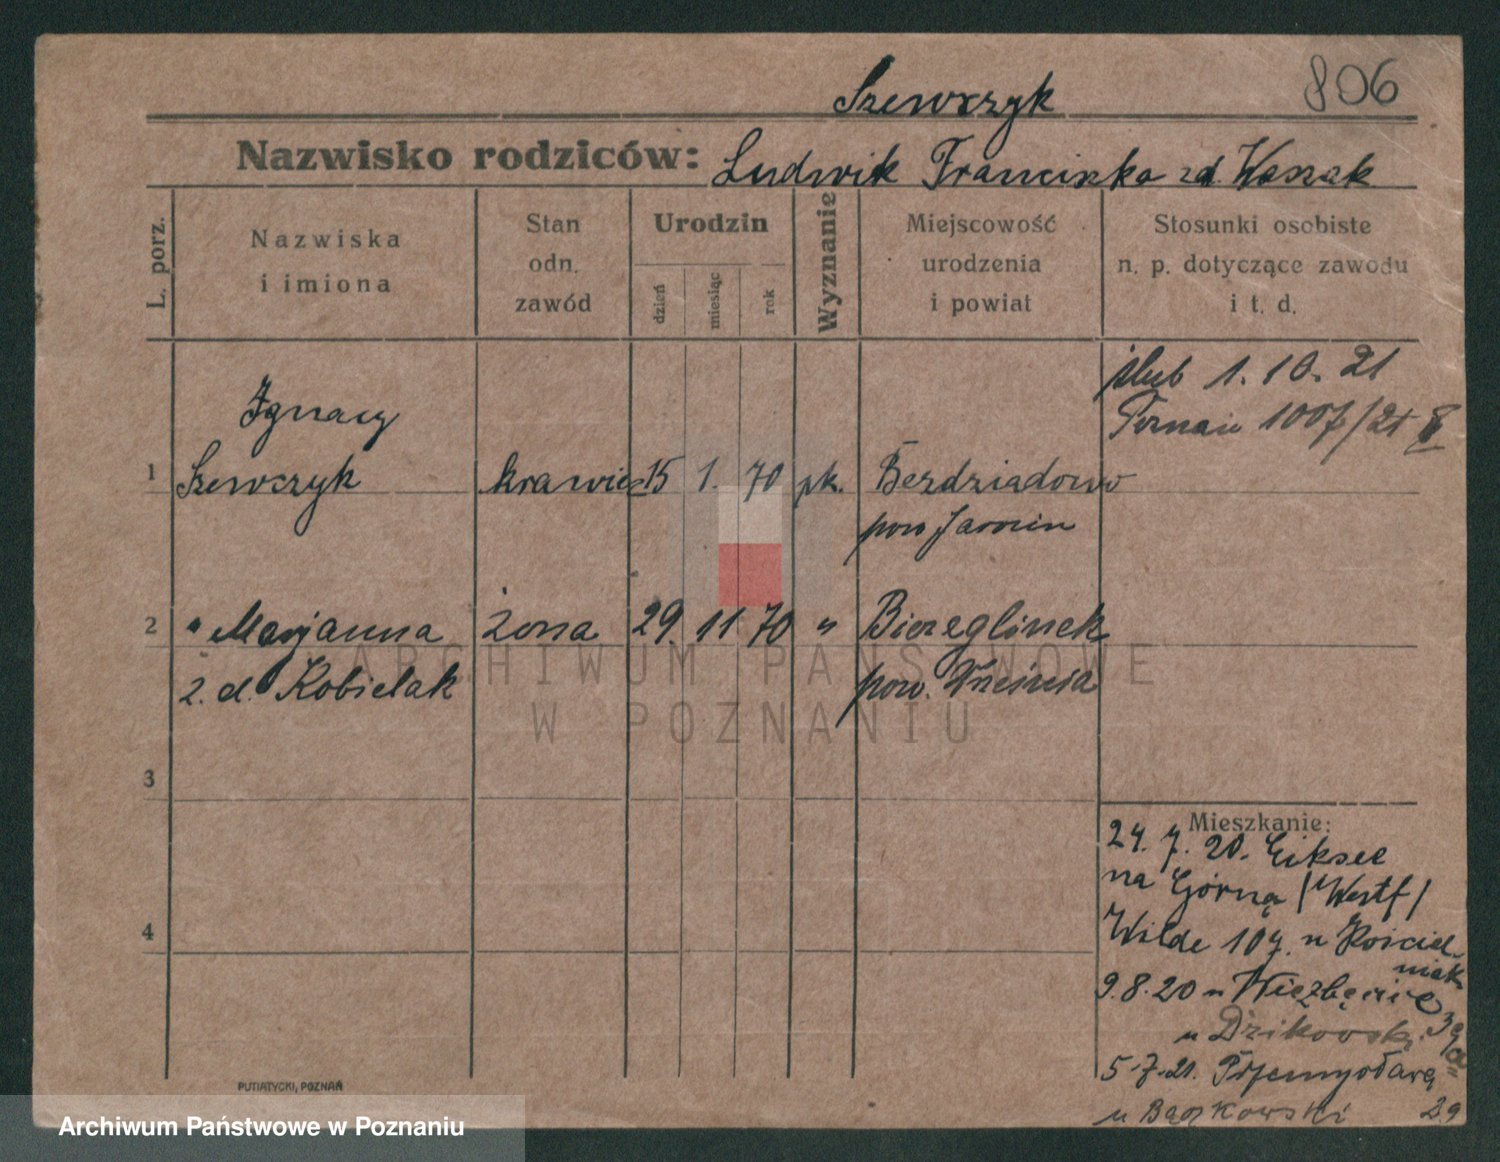 806
Szewczyk
Nazwisko rodziców: Ludwik Franciszka zd. Waszak
L. porz.
Nazwiska
i imiona
Stan
odn.
zawód
Urodzin
dzień
miesiąc
rok
Wyznanie
Miejscowość
urodzenia
i powiat
Stosunki osobiste
n. p. dotyczące zawodu
i t. d.
ślub 1. 10. 21
Poznań 1007/21
Ignacy
1 Szewczyk krawiec 15 1. 70 rk. Bezdziadowo
pow Jarocin
2 " Marjanna żona 29. 11 70 " Biezeglinek
z. d. Kobielak pow. Września
3
4
Mieszkanie:
24. 7. 20.
na Górną /Westf/
Wilde 107. u Kościel-
niak
9.8.20 Wiezbęcice 39a
u Dzikowski
5.7.21. Przemysława 29
u Bączkowski
PUTIATYCKI, POZNAŃ
ARCHIWUM PAŃSTWOWE
W POZNANIU
Archiwum Państwowe w Poznaniu